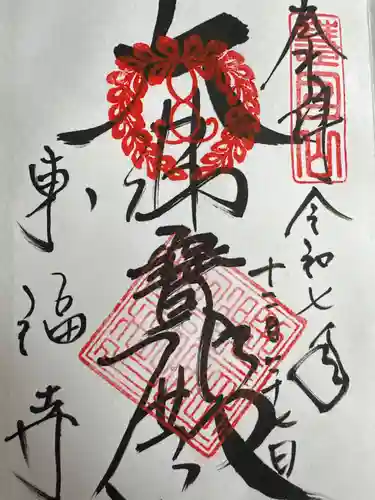 奉拝
令和七年
十二月二十七日
大佛寳殿
東福寺